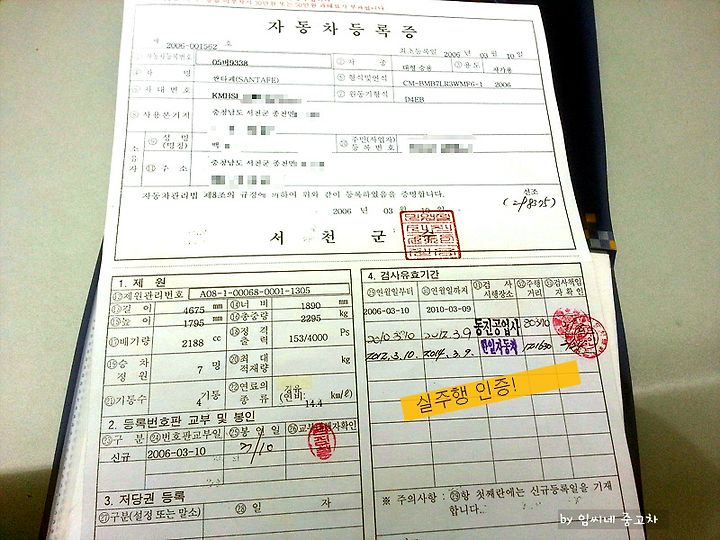 자동차등록증
제 2006-001562 호
최초등록일 2006 년 03 월 10 일
자동차등록번호 05버9338 ② 차 종 대형 승용 ③ 용도 자가용
④ 차 명 싼타페(SANTAFE) ⑤ 형식및연식 CM-BMB7LR3WMF6-1 2006
차 대 번 호 KMHSJ 원동기형식 D4EB
사용본거지 충청남도 서천군 종천면
소유자 성 명 (명칭) 백 주민(사업자) 등 록 번 호
주 소 충청남도 서천군 종천면
자동차관리법 제8조의 규정에 의하여 위와 같이 등록하였음을 증명합니다.
2006 년 03 월 10 일
서 천 군
1. 제 원
제원관리번호 A08-1-00068-0001-1305
길 이 4675 mm 너 비 1890 mm
높 이 1795 mm 총중량 2295 kg
배기량 2188 cc 정 격 출 력 153/4000 Ps
승 차 정 원 7 명 최 대 적재량 kg
기통수 4 기통 연료의 종 류 경유 (연비: 14.4 km/ℓ)
2. 등록번호판 교부 및 봉인
구 분 번호판교부일 봉 인 일 확인
신규 2006-03-10
3. 저당권 등록
구분(설정 또는 말소) 일 자
4. 검사유효기간
연월일부터 연월일까지 검 사 시행장소 주행 거리 검사책임 자 확 인
2006-03-10 2010-03-09
2010.3.10 2012.3.9 동진공업사
2012.3.10. 2014.3.9. 한일자동차
실주행 인증!
※ 주의사항 : ㉙항 첫째란에는 신규등록일을 기재합니다.
by 임씨네 중고차